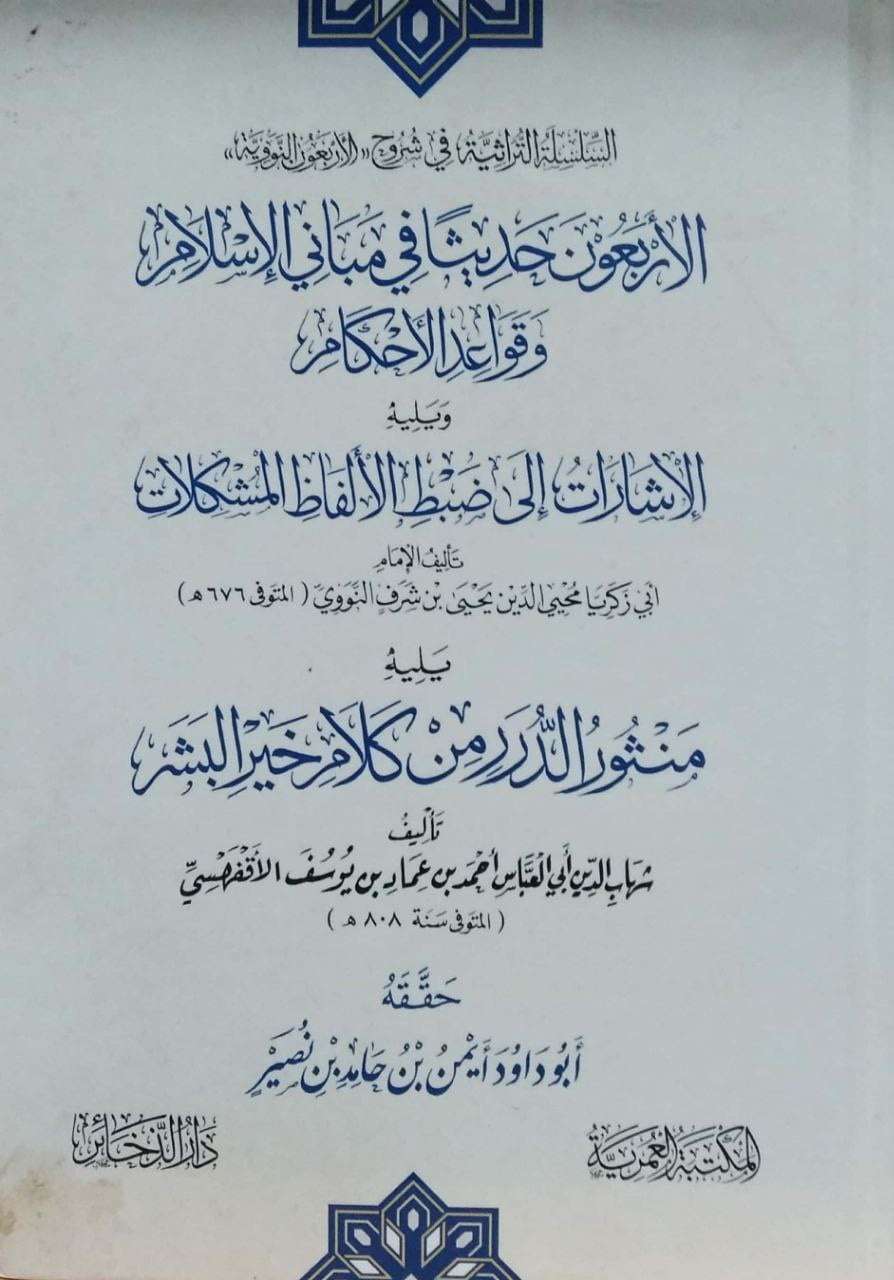 السِّلْسِلَةُ التُّرَاثِيَّةُ فِي شُرُوحِ «الأَرْبَعُونَ النَّوَوِيَّة»
الأَرْبَعُوْنَ حَدِيثًا فِي مَبَانِي الإِسْلَامِ
وَقَوَاعِدِ الأَحْكَامِ
وَيَلِيهِ
الإِشَارَاتُ إِلَى ضَبْطِ الأَلْفَاظِ المُشْكِلَاتِ
تَأْلِيفُ الإِمَامِ
أَبِي زَكَرِيَّا مُحْيِي الدِّيْنِ يَحْيَى بْنِ شَرَفٍ النَّوَوِيّ ( المتوفى ٦٧٦ هـ )
يَلِيهِ
مَنْثُورُ الدُّرَرِ مِنْ كَلَامِ خَيْرِ البَشَرِ
تَأْلِيْفُ
شِهَابِ الدِّينِ أَبِي العَبَّاسِ أَحْمَدَ بن عِمَاد بن يُوسُفَ الأَقْفَهْسِيِّ
( المتوفى سنة ٨٠٨ هـ )
حَقَّقَهُ
أَبُو دَاوُدَ أَيْمَنُ بْنُ حَامِدِ بْنِ نُصَيْرٍ
المَكْتَبَةُ العُمَرِيَّةُ
دَارُ الذَّخَائِرِ